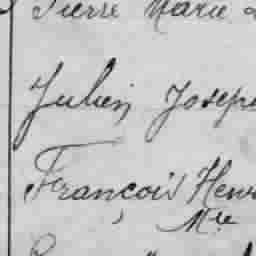 Pierre Marie
Julien Joseph
François Henri
Mie